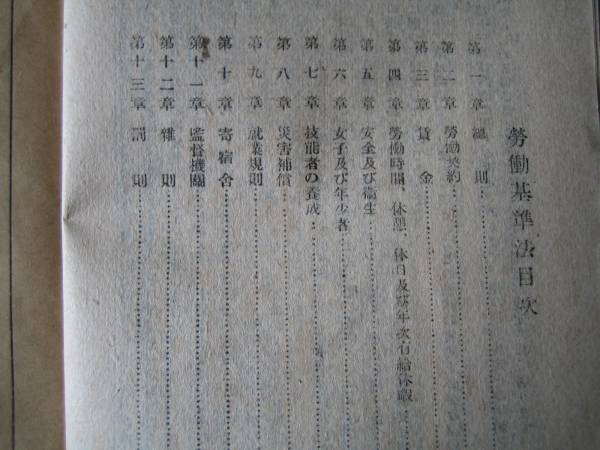 勞働基準法目次
第一章 總則
第二章 勞働契約
第三章 賃金
第四章 勞働時間、休憩、休日及び年次有給休暇
第五章 安全及び衞生
第六章 女子及び年少者
第七章 技能者の養成
第八章 災害補償
第九章 就業規則
第十章 寄宿舍
第十一章 監督機關
第十二章 雜則
第十三章 罰則